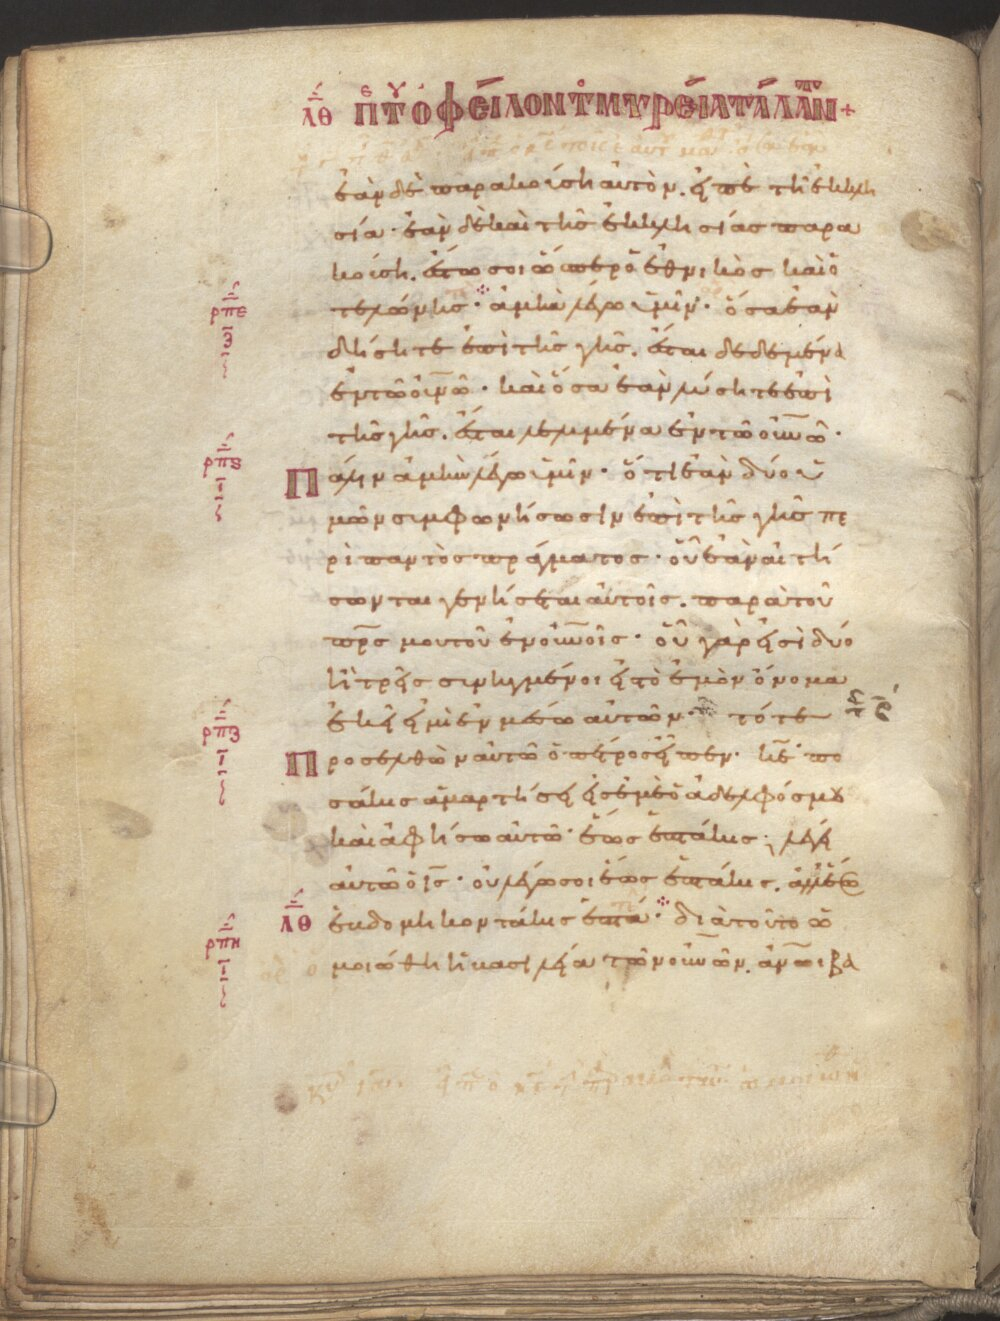 ΛΘ ΠΕ ΤΟΥ ὈΦΕΊΛΟΝΤΟΣ ΜΥΡΕΙΑ ΤΆΛΑΝΤ +
ἐὰν δὲ παρακούση αὐτῶν, εἰπὲ τῆ ἐκκλη
σία· ἐὰν δὲ καὶ τῆς ἐκκλησίας παρα
κούση, ἔστω σοι ὥσπερ ὁ ἐθνικὸς καὶ ὁ
τελώνης· ἀμὴν λέγω ὑμῖν· ὅσα ἐὰν
ρπε
ς
δήσητε ἐπὶ τῆς γῆς, ἔσται δεδεμένα
ἐν τῶ οὐνῶ· καὶ ὅσα ἐὰν λύσητε ἐπὶ
τῆς γῆς, ἔσται λελυμένα ἐν τῶ οὐνῶ·
ρπς
ι
Πάλιν ἀμὴν λέγω ὑμῖν· ὅτι ἐὰν δύο ὑ
μῶν συμφωνήσωσιν ἐπὶ τῆς γῆς πε
ρὶ παντὸς πράγματος· οὗ ἐὰν αἰτή
σωνται γενήσεται αὐτοῖς, παρὰ τοῦ
πρς μου τοῦ ἐν οὐνοῖς· οὗ γάρ εἰσι δύο
ἢ τρεῖς συνηγμένοι εἰς τὸ ἐμὸν ὄνομα
ἐκεῖ εἰμὶ ἐν μέσω αὐτῶν· τότε
ρπζ
ι
Προσελθὼν αὐτῶ ὁ πέτρος εἶπεν· κε πο
σάκις ἁμαρτήσει εἰς ἐμὲ ὁ ἀδελφός μου
καὶ ἀφήσω αὐτῶ· ἕως ἑπτάκις; λέγει
αὐτῶ ὁ ις· οὐ λέγω σοι ἕως ἑπτάκις, ἀλλ' ἕως
ΛΘ ἑβδομηκοντάκις ἑπτά· διὰ τοῦτο ὡ
ρπη
ι
μοιώθη ἡ βασιλεία τῶν οὐνῶν, ἀνωι βα